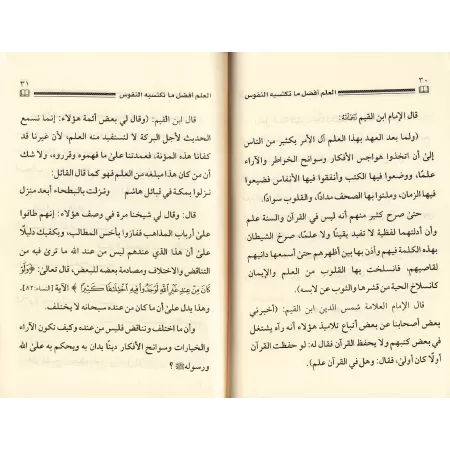 ٣٠
العلم أفضل ما تكتسبه النفوس
قال الإمام ابن القيم رَحِمَهُ اللَّهُ:
(ولما بعد العهد بهذا العلم آل الأمر بكثير من الناس
إلى أن اتخذوا هواجس الأفكار وسوانح الخواطر والآراء
علمًا، ووضعوا فيها الكتب وأنفقوا فيها الأنفاس فضيعوا
فيها الزمان، وملئوا بها الصحف مدادًا، والقلوب سوادًا.
حتى صرح كثير منهم أنه ليس في القرآن والسنة علم
وأن أدلتهما لفظية لا تفيد يقينًا ولا علمًا، صرخ الشيطان
بهذه الكلمة فيهم وأذن بها بين أظهرهم حتى أسمعها دانيهم
لقاصيهم، فانسلخت بها القلوب من العلم والإيمان
كانسلاخ الحية من قشرها والثوب عن لابسه).
قال الإمام العلامة شمس الدين ابن القيم: (أخبرني
بعض أصحابنا عن بعض أتباع تلاميذ هؤلاء أنه رآه يشتغل
في بعض كتبهم ولا يحفظ القرآن فقال له: لو حفظت القرآن
أولًا كان أولى، فقال: وهل في القرآن علم).
٣١
العلم أفضل ما تكتسبه النفوس
قال ابن القيم: (وقال لي بعض أئمة هؤلاء: إنما نسمع
الحديث لأجل البركة لا لنستفيد منه العلم، لأن غيرنا قد
كفانا هذه المؤنة، فعمدتنا على ما فهموه وقرروه، ولا شك
أن من كان هذا مبلغه من العلم فهو كما قال القائل:
نزلوا بمكة في قبائل هاشم ونزلت بالبطحاء أبعد منزل
قال: وقال لي شيخنا مرة في وصف هؤلاء: إنهم طافوا
على أرباب المذاهب ففازوا بأخس المطالب، ويكفيك دليلًا
على أن هذا الذي عندهم ليس من عند الله ما ترى فيه من
التناقض والاختلاف ومصادمة بعضه لبعض، قال تعالى: ﴿وَلَوْ
كَانَ مِنْ عِندِ غَيْرِ اللَّهِ لَوَجَدُوا فِيهِ اخْتِلَافًا كَثِيرًا﴾ الآية [النساء: ٨٢].
وهذا يدل على أن ما كان من عنده سبحانه لا يختلف.
وأن ما اختلف وتناقض فليس من عنده وكيف تكون الآراء
والخيارات وسوانح الأفكار دينًا يدان به ويحكم به على الله
ورسوله ﷺ؟